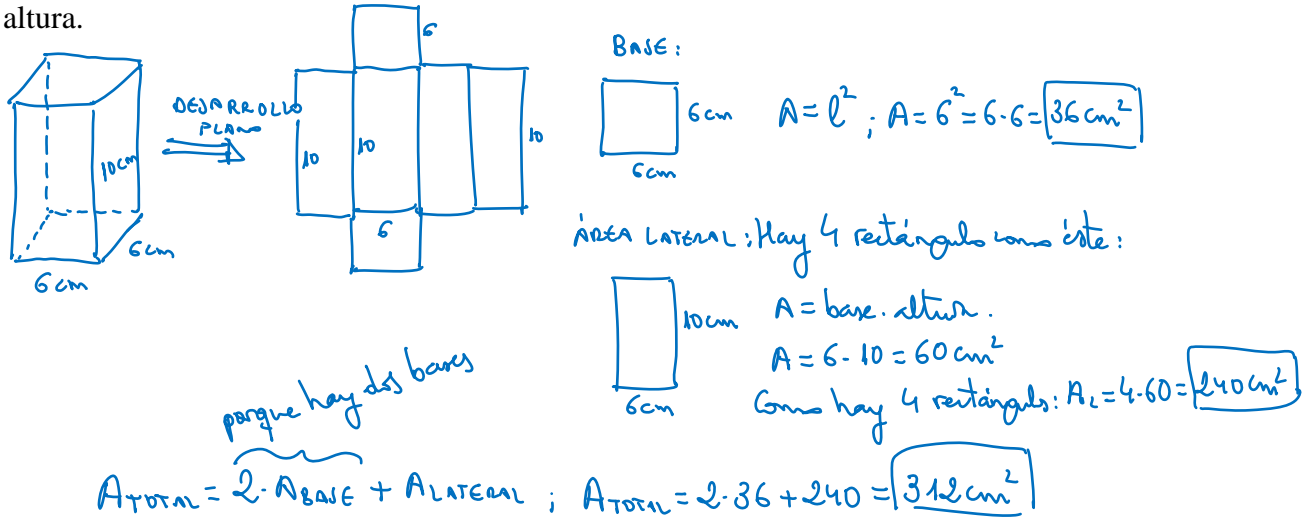 altura.
DESARROLLO
PLANO
10cm
6cm
6cm
6
10
10
10
6
BASE:
6cm
6cm
A = l² ; A = 6² = 6·6 = 36 cm²
ÁREA LATERAL: Hay 4 rectángulos como éste:
10cm
6cm
A = base · altura.
A = 6 · 10 = 60 cm²
Como hay 4 rectángulos: A_L = 4·60 = 240 cm²
porque hay dos bases
A_TOTAL = 2· A_BASE + A_LATERAL ; A_TOTAL = 2·36 + 240 = 312 cm²